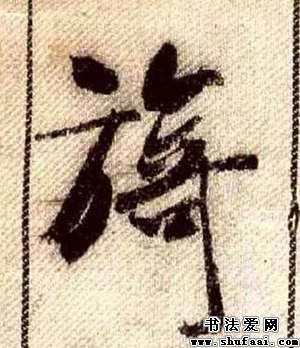 旖
书法爱网
www.shufaai.com